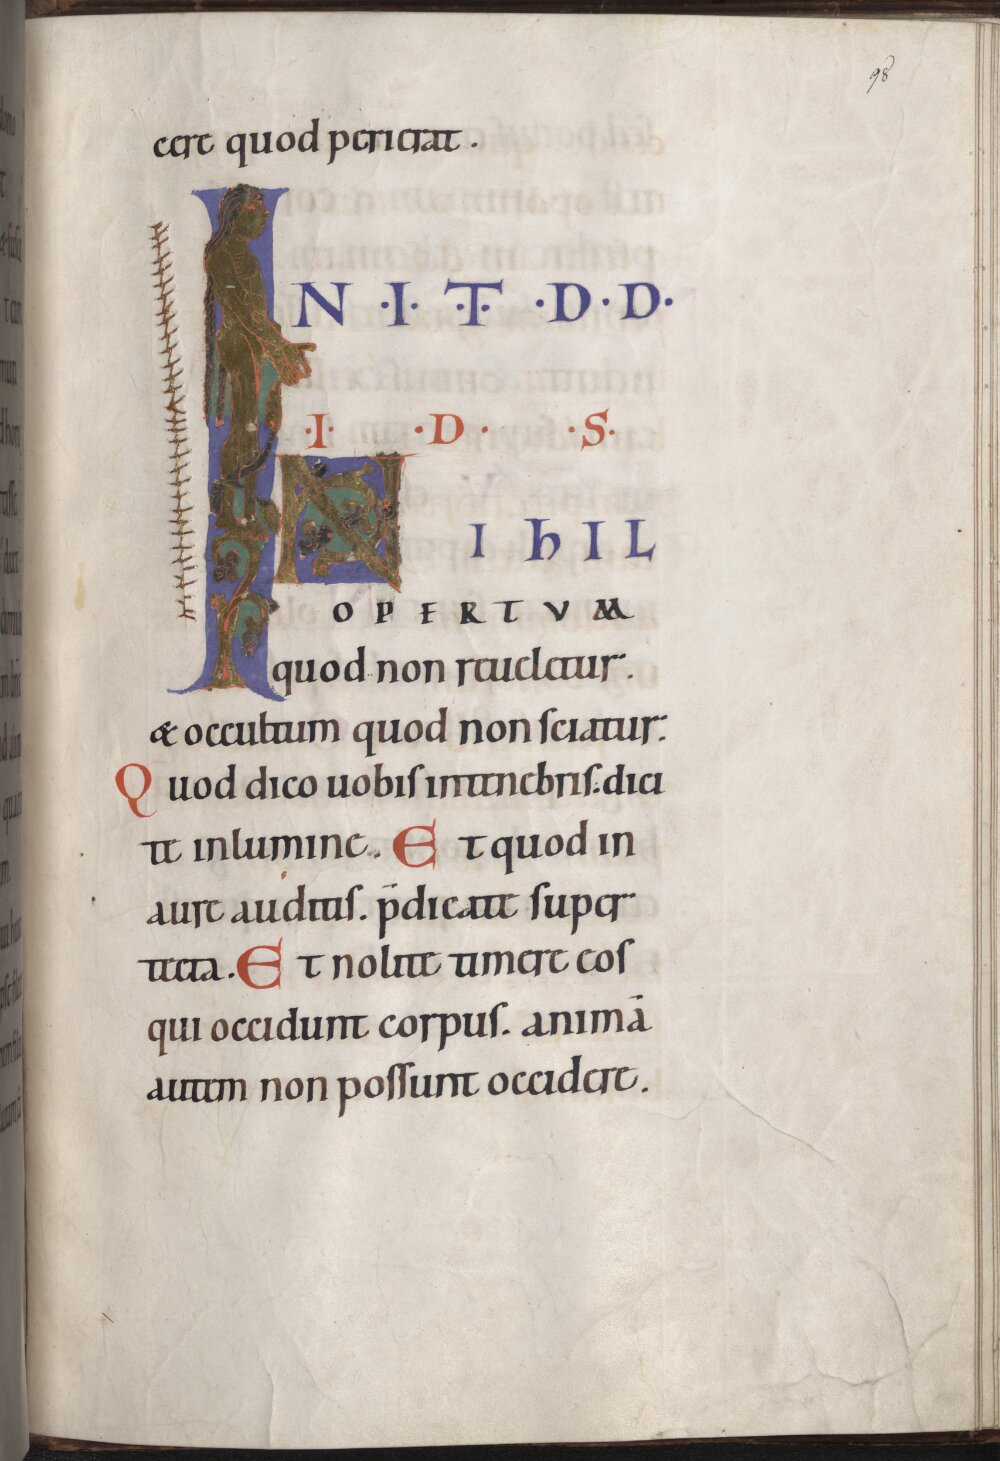 98
cere quod perierat.
IN ·I· T ·D·D·
·I· ·D· ·S·
NIhIL
OPERTVM
quod non reueletur.
& occultum quod non sciatur.
Quod dico uobis intenebris. dici
te inlumine. Et quod in
aure auditis. p̄dicate super
tecta. Et nolite timere eos
qui occidunt corpus. animā
autem non possunt occidere.